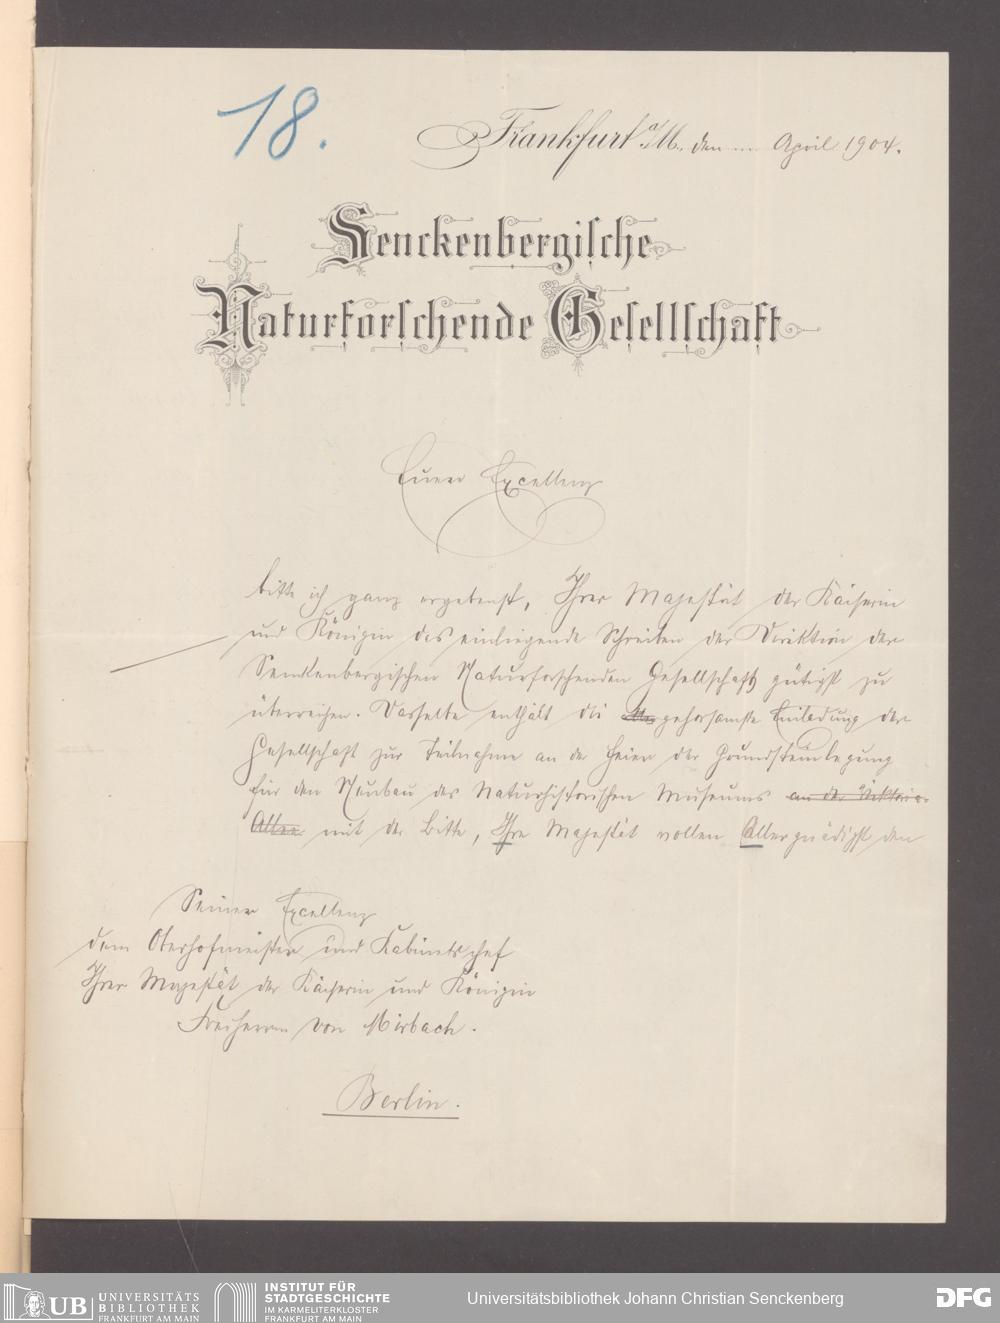 18.
Frankfurt a/M. den ... April 1904.
Senckenbergische
Naturforschende Gesellschaft
Euere Excellenz
bitte ich ganz ergebenst, Ihrer Majestät der Kaiserin
und Königin das einliegende Schreiben der Direktion der
Senckenbergischen Naturforschenden Gesellschaft gütigst zu
überreichen. Dasselbe enthält die gehorsamste Einladung der
Gesellschaft zur Teilnahme an der Feier der Grundsteinlegung
für den Neubau des Naturhistorischen Museums an der Viktoria-
Allee mit der Bitte, Ihre Majestät wollen Allergnädigst den
Seiner Excellenz
dem Oberhofmeister und Kabinetschef
Ihrer Majestät der Kaiserin und Königin
Freiherrn von Mirbach.
Berlin.
UB UNIVERSITÄTS
BIBLIOTHEK
FRANKFURT AM MAIN
INSTITUT FÜR
STADTGESCHICHTE
IM KARMELITERKLOSTER
FRANKFURT AM MAIN
Universitätsbibliothek Johann Christian Senckenberg
DFG